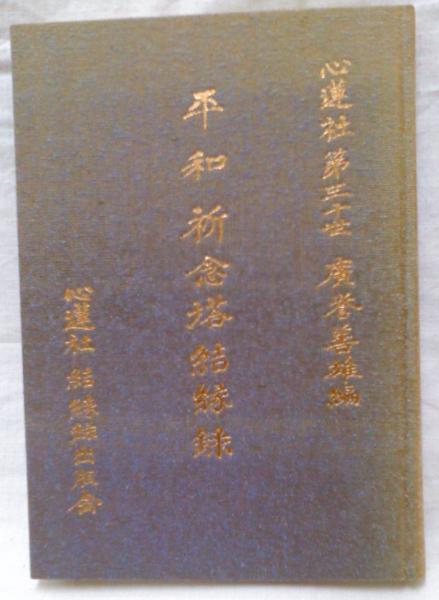 心蓮社第三十世 廣誉善雄編
平和祈念塔結縁録
心蓮社 結縁録出版会